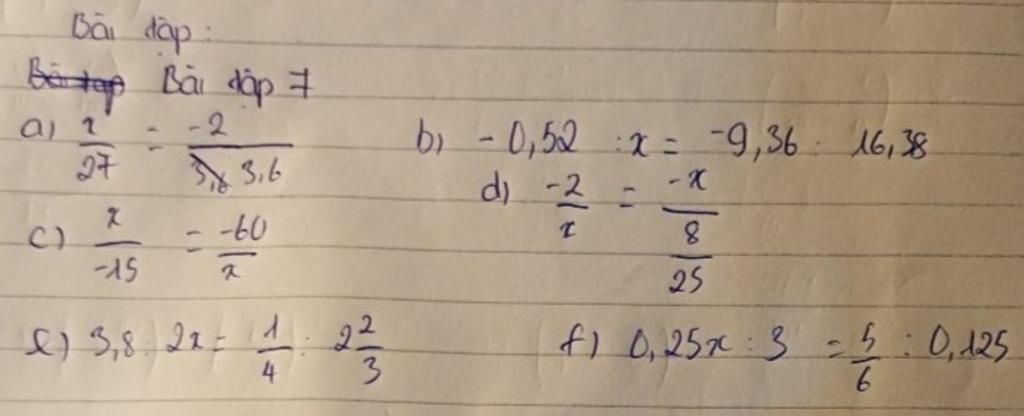 Bài tập:
Bài tập 7
a) x/27 = -2/3,6
b) -0,52 : x = -9,36 : 16,38
c) x/-15 = -60/x
d) -2/x = -x/(8/25)
e) 3,8 : 2x = 1/4 : 2 2/3
f) 0,25x : 3 = 5/6 : 0,125